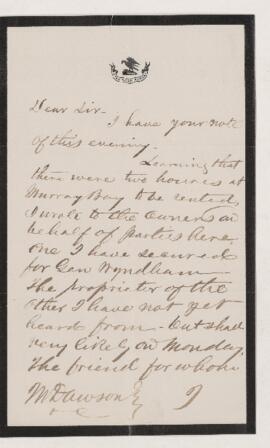 Dear Sir -
I have your note
of this evening.
Learning that
there were two houses at
Murray Bay to be rented,
I wrote to the owners on
behalf of parties here
one I have secured
for Gen Wyndham -
The proprietor of the
other I have not yet
heard from - but shall
very likely on Monday.
The friend for whom
M Dawson Esq
I